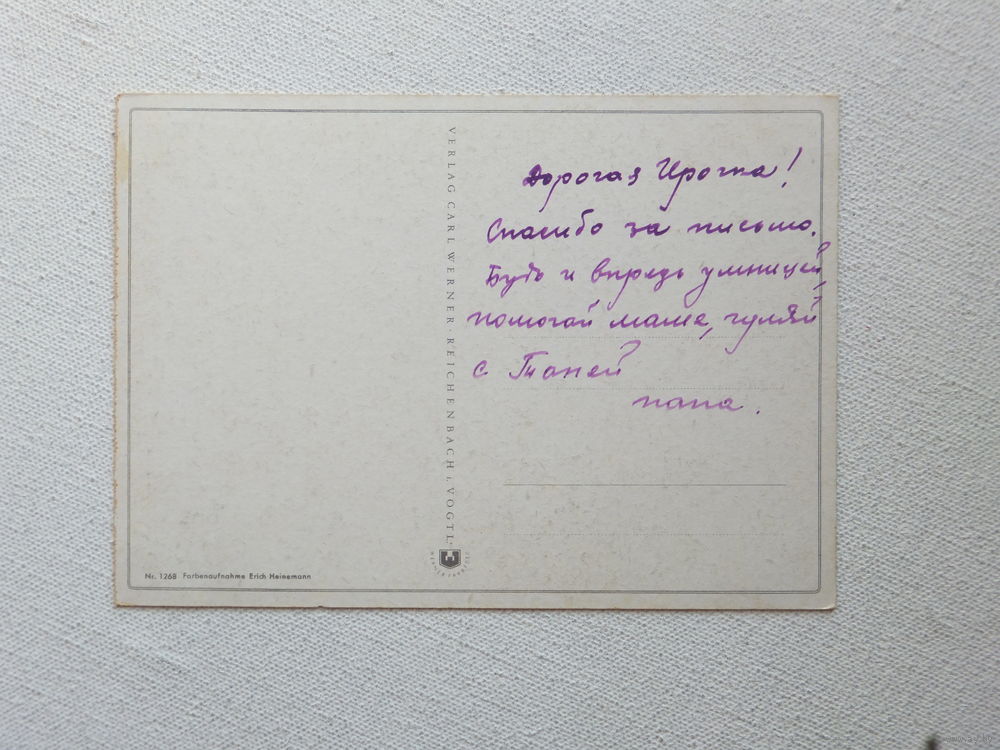 Дорогая Ирочка!
Спасибо за письмо.
Будь и впредь умницей,
помогай маме, гуляй
с Таней
папа.
VERLAG CARL WERNER · REICHENBACH i. VOGTL.
Nr. 1268 Farbenaufnahme Erich Heinemann